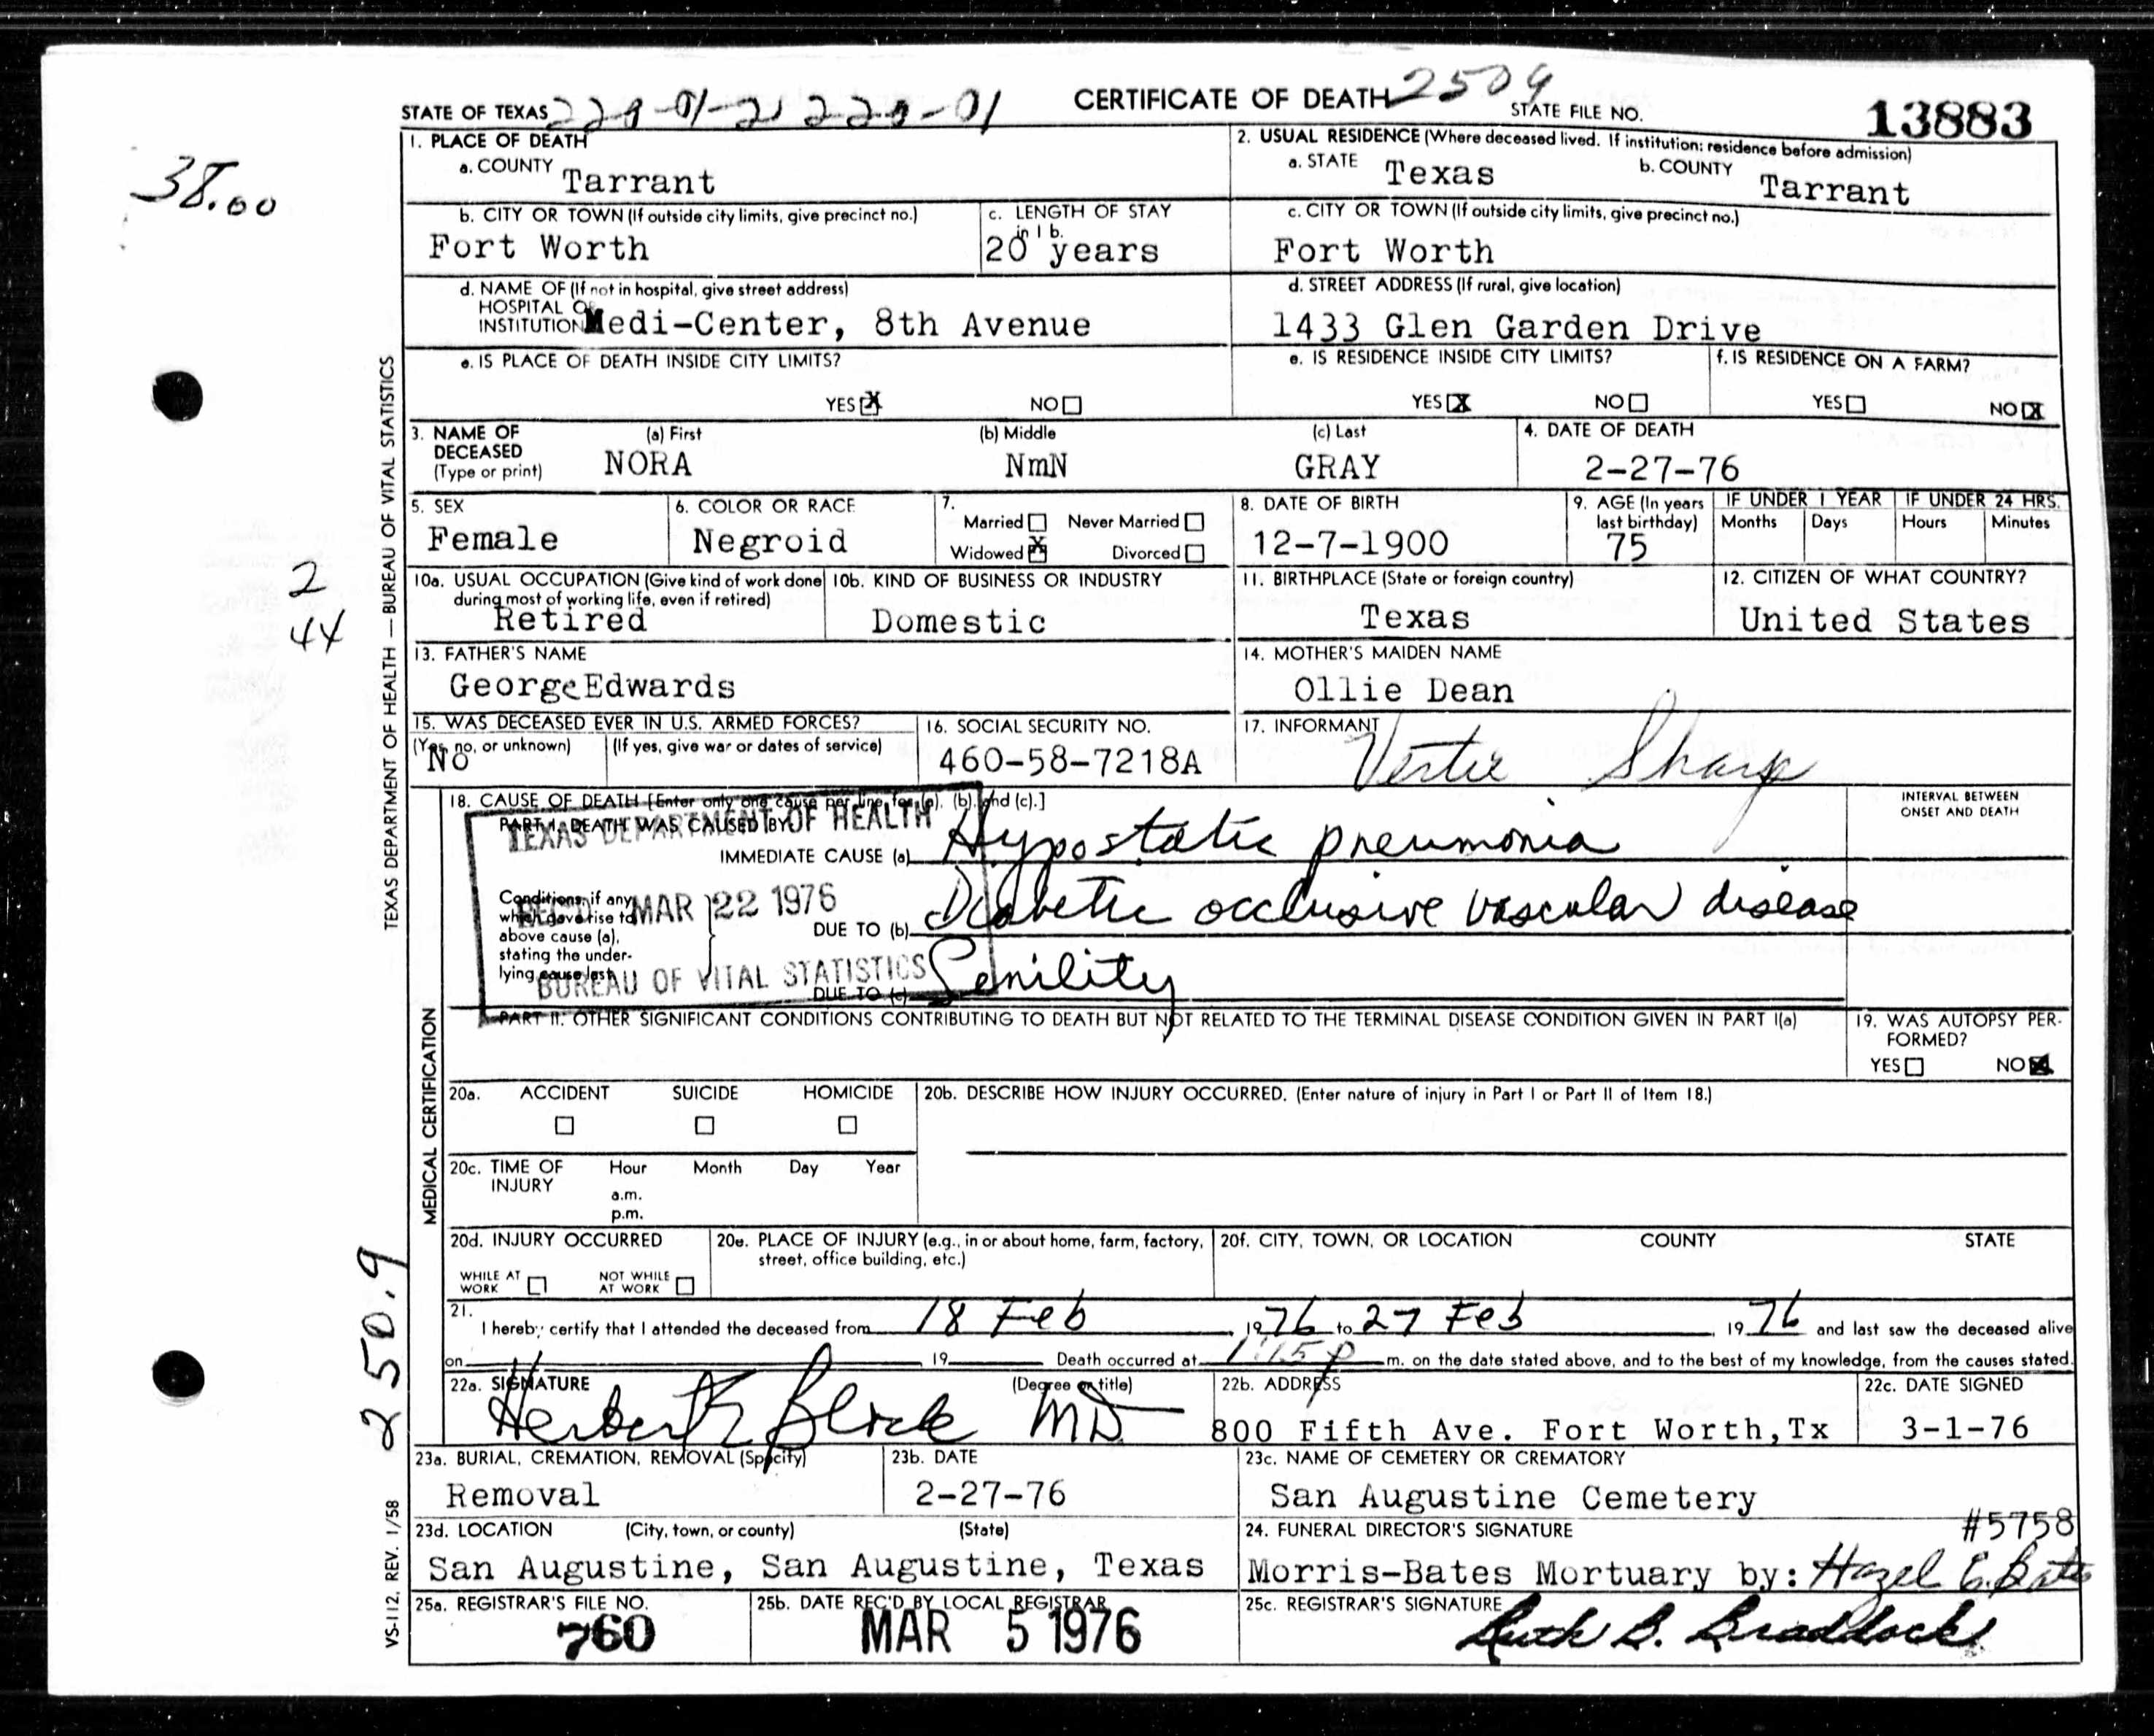 STATE OF TEXAS
CERTIFICATE OF DEATH 2509 STATE FILE NO. 13883
38.00
1. PLACE OF DEATH
a. COUNTY Tarrant
2. USUAL RESIDENCE (Where deceased lived. If institution: residence before admission)
a. STATE Texas b. COUNTY Tarrant
b. CITY OR TOWN (If outside city limits, give precinct no.) Fort Worth
c. LENGTH OF STAY in 1 b. 20 years
c. CITY OR TOWN (If outside city limits, give precinct no.) Fort Worth
d. NAME OF (If not in hospital, give street address)
HOSPITAL OR
INSTITUTION Medi-Center, 8th Avenue
d. STREET ADDRESS (If rural, give location)
1433 Glen Garden Drive
e. IS PLACE OF DEATH INSIDE CITY LIMITS?
YES X NO
e. IS RESIDENCE INSIDE CITY LIMITS?
YES X NO
f. IS RESIDENCE ON A FARM?
YES NO X
3. NAME OF DECEASED (Type or print)
(a) First NORA (b) Middle NmN (c) Last GRAY
4. DATE OF DEATH
2-27-76
5. SEX
Female
6. COLOR OR RACE
Negroid
7.
Married Never Married
Widowed X Divorced
8. DATE OF BIRTH
12-7-1900
9. AGE (In years last birthday)
75
IF UNDER 1 YEAR
Months Days
IF UNDER 24 HRS.
Hours Minutes
10a. USUAL OCCUPATION (Give kind of work done during most of working life, even if retired)
Retired
10b. KIND OF BUSINESS OR INDUSTRY
Domestic
11. BIRTHPLACE (State or foreign country)
Texas
12. CITIZEN OF WHAT COUNTRY?
United States
2
44
13. FATHER'S NAME
George Edwards
14. MOTHER'S MAIDEN NAME
Ollie Dean
15. WAS DECEASED EVER IN U.S. ARMED FORCES?
(Yes, no, or unknown) (If yes, give war or dates of service)
No
16. SOCIAL SECURITY NO.
460-58-7218A
17. INFORMANT
Vertie Sharp
TEXAS DEPARTMENT OF HEALTH — BUREAU OF VITAL STATISTICS
MEDICAL CERTIFICATION
18. CAUSE OF DEATH [Enter only one cause per line for (a), (b), and (c).]
PART I. DEATH WAS CAUSED BY:
IMMEDIATE CAUSE (a) Hypostatic pneumonia
INTERVAL BETWEEN ONSET AND DEATH
Conditions, if any, which gave rise to above cause (a), stating the underlying cause last
DUE TO (b) Diabetic occlusive vascular disease
DUE TO (c) Senility
TEXAS DEPARTMENT OF HEALTH
REC'D MAR 22 1976
BUREAU OF VITAL STATISTICS
PART II. OTHER SIGNIFICANT CONDITIONS CONTRIBUTING TO DEATH BUT NOT RELATED TO THE TERMINAL DISEASE CONDITION GIVEN IN PART I(a)
19. WAS AUTOPSY PERFORMED?
YES NO X
20a. ACCIDENT SUICIDE HOMICIDE
20b. DESCRIBE HOW INJURY OCCURRED. (Enter nature of injury in Part I or Part II of Item 18.)
20c. TIME OF INJURY Hour Month Day Year
a.m.
p.m.
20d. INJURY OCCURRED
WHILE AT WORK NOT WHILE AT WORK
20e. PLACE OF INJURY (e.g., in or about home, farm, factory, street, office building, etc.)
20f. CITY, TOWN, OR LOCATION COUNTY STATE
250.9
21.
I hereby certify that I attended the deceased from 18 Feb, 1976 to 27 Feb, 1976 and last saw the deceased alive
on 19 Death occurred at 1:15 p m. on the date stated above, and to the best of my knowledge, from the causes stated.
22a. SIGNATURE (Degree or title)
Herbert Block MD
22b. ADDRESS
800 Fifth Ave. Fort Worth,Tx
22c. DATE SIGNED
3-1-76
23a. BURIAL, CREMATION, REMOVAL (Specify)
Removal
23b. DATE
2-27-76
23c. NAME OF CEMETERY OR CREMATORY
San Augustine Cemetery
23d. LOCATION (City, town, or county) (State)
San Augustine, San Augustine, Texas
24. FUNERAL DIRECTOR'S SIGNATURE #5758
Morris-Bates Mortuary by: Hazel E. Bates
25a. REGISTRAR'S FILE NO.
760
25b. DATE REC'D BY LOCAL REGISTRAR
MAR 5 1976
25c. REGISTRAR'S SIGNATURE
Ruth B. Braddock
VS-112, REV. 1/58